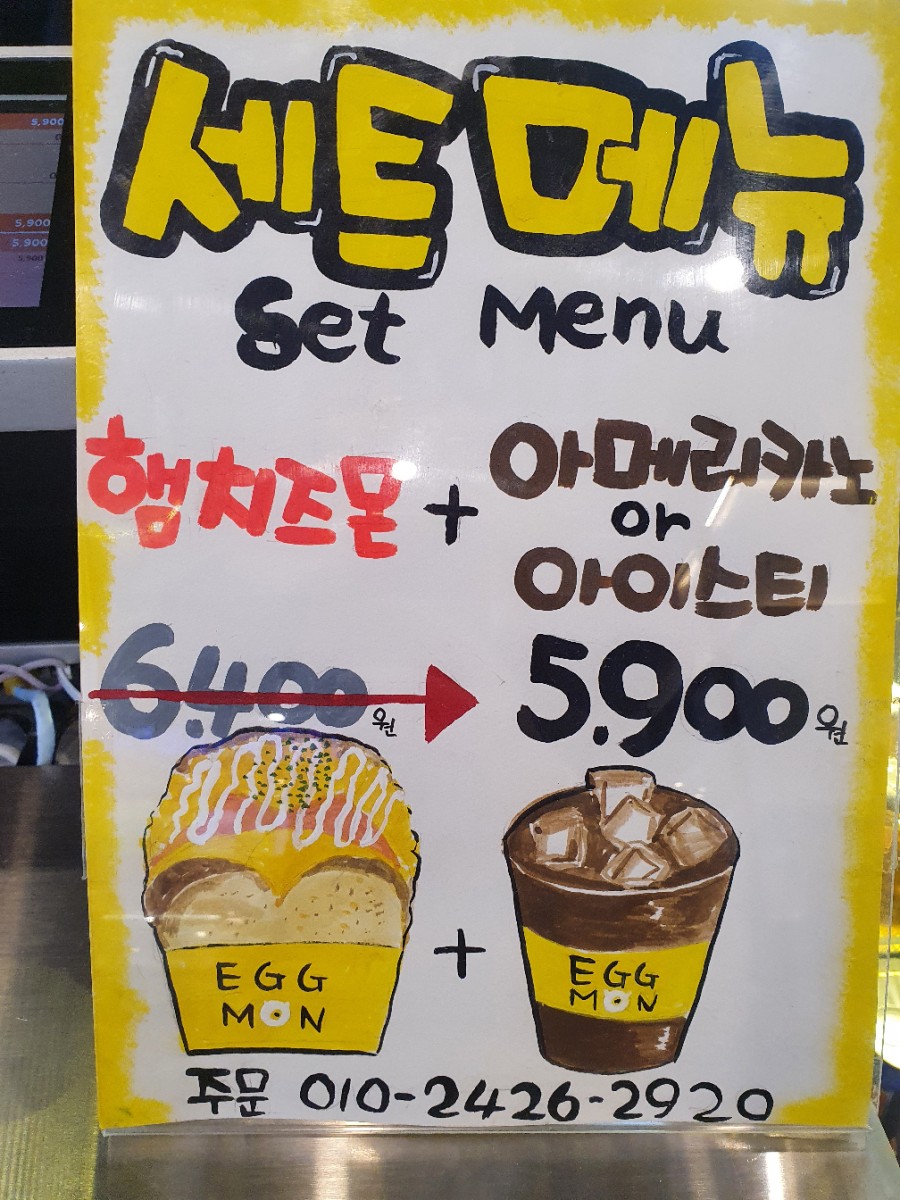 세트메뉴
Set Menu
햄치즈몬 + 아메리카노
or
아이스티
6.400원 5.900원
EGG
MON
+
EGG
MON
주문 010-2426-2920
5,900
5,900
5.900
5.900